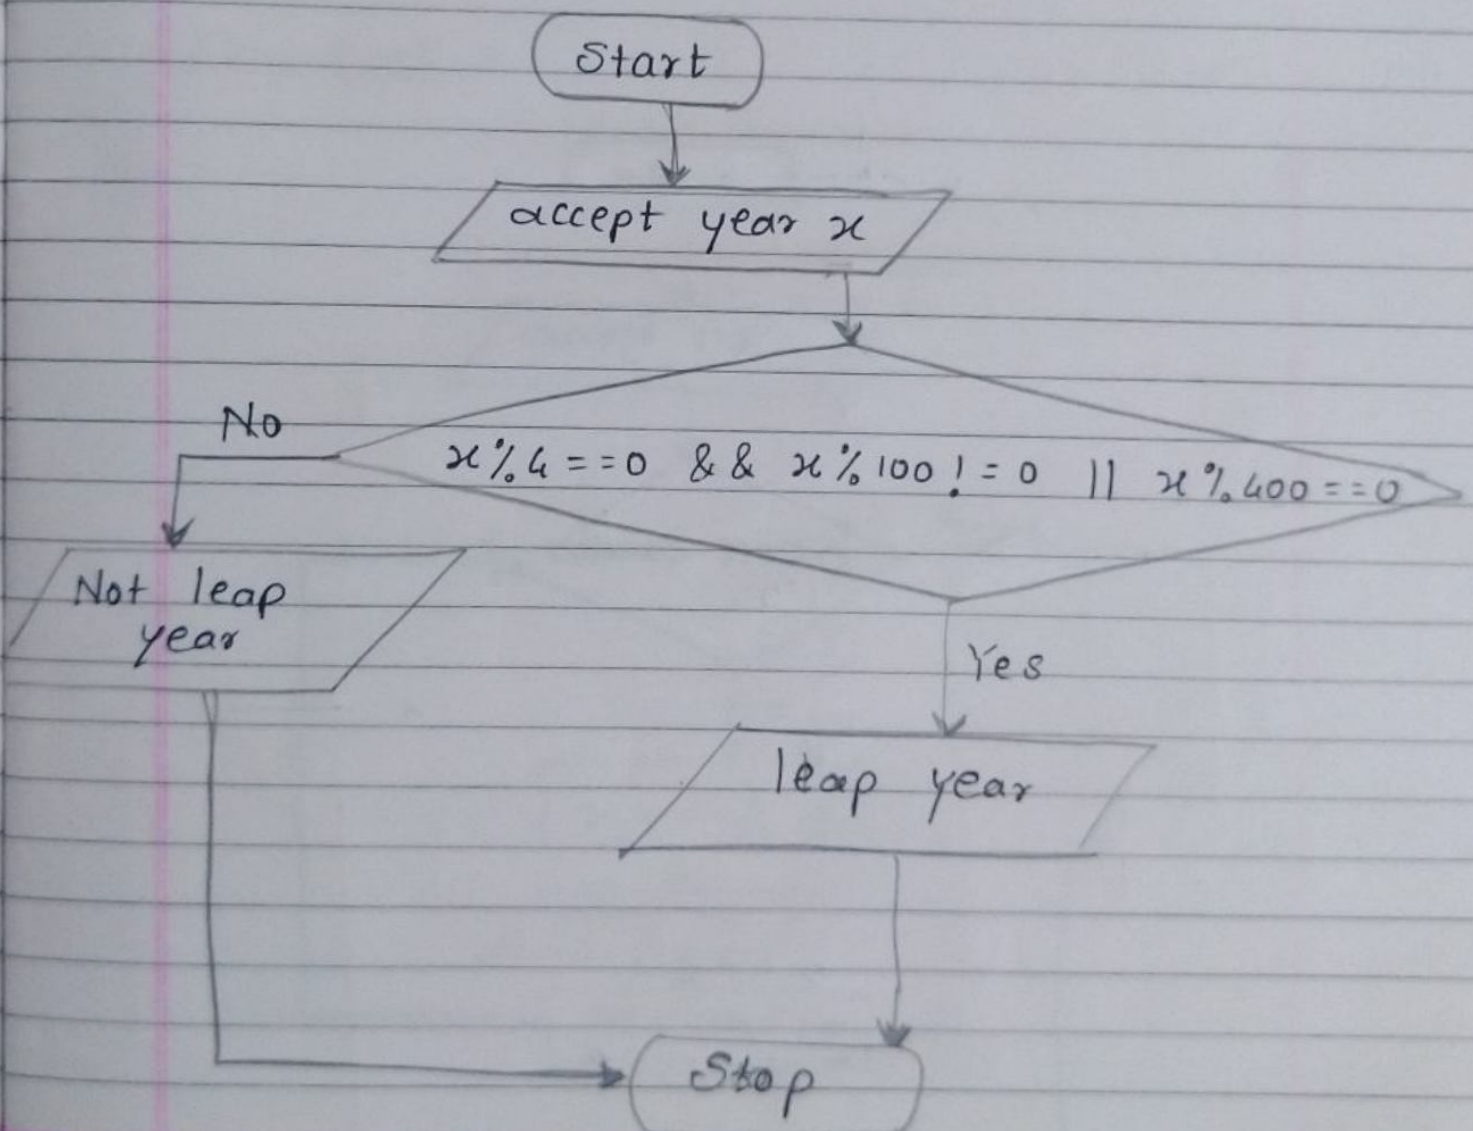 Start
accept year x
No
x%4==0 && x%100!=0 || x%400==0
Not leap
year
Yes
leap year
Stop